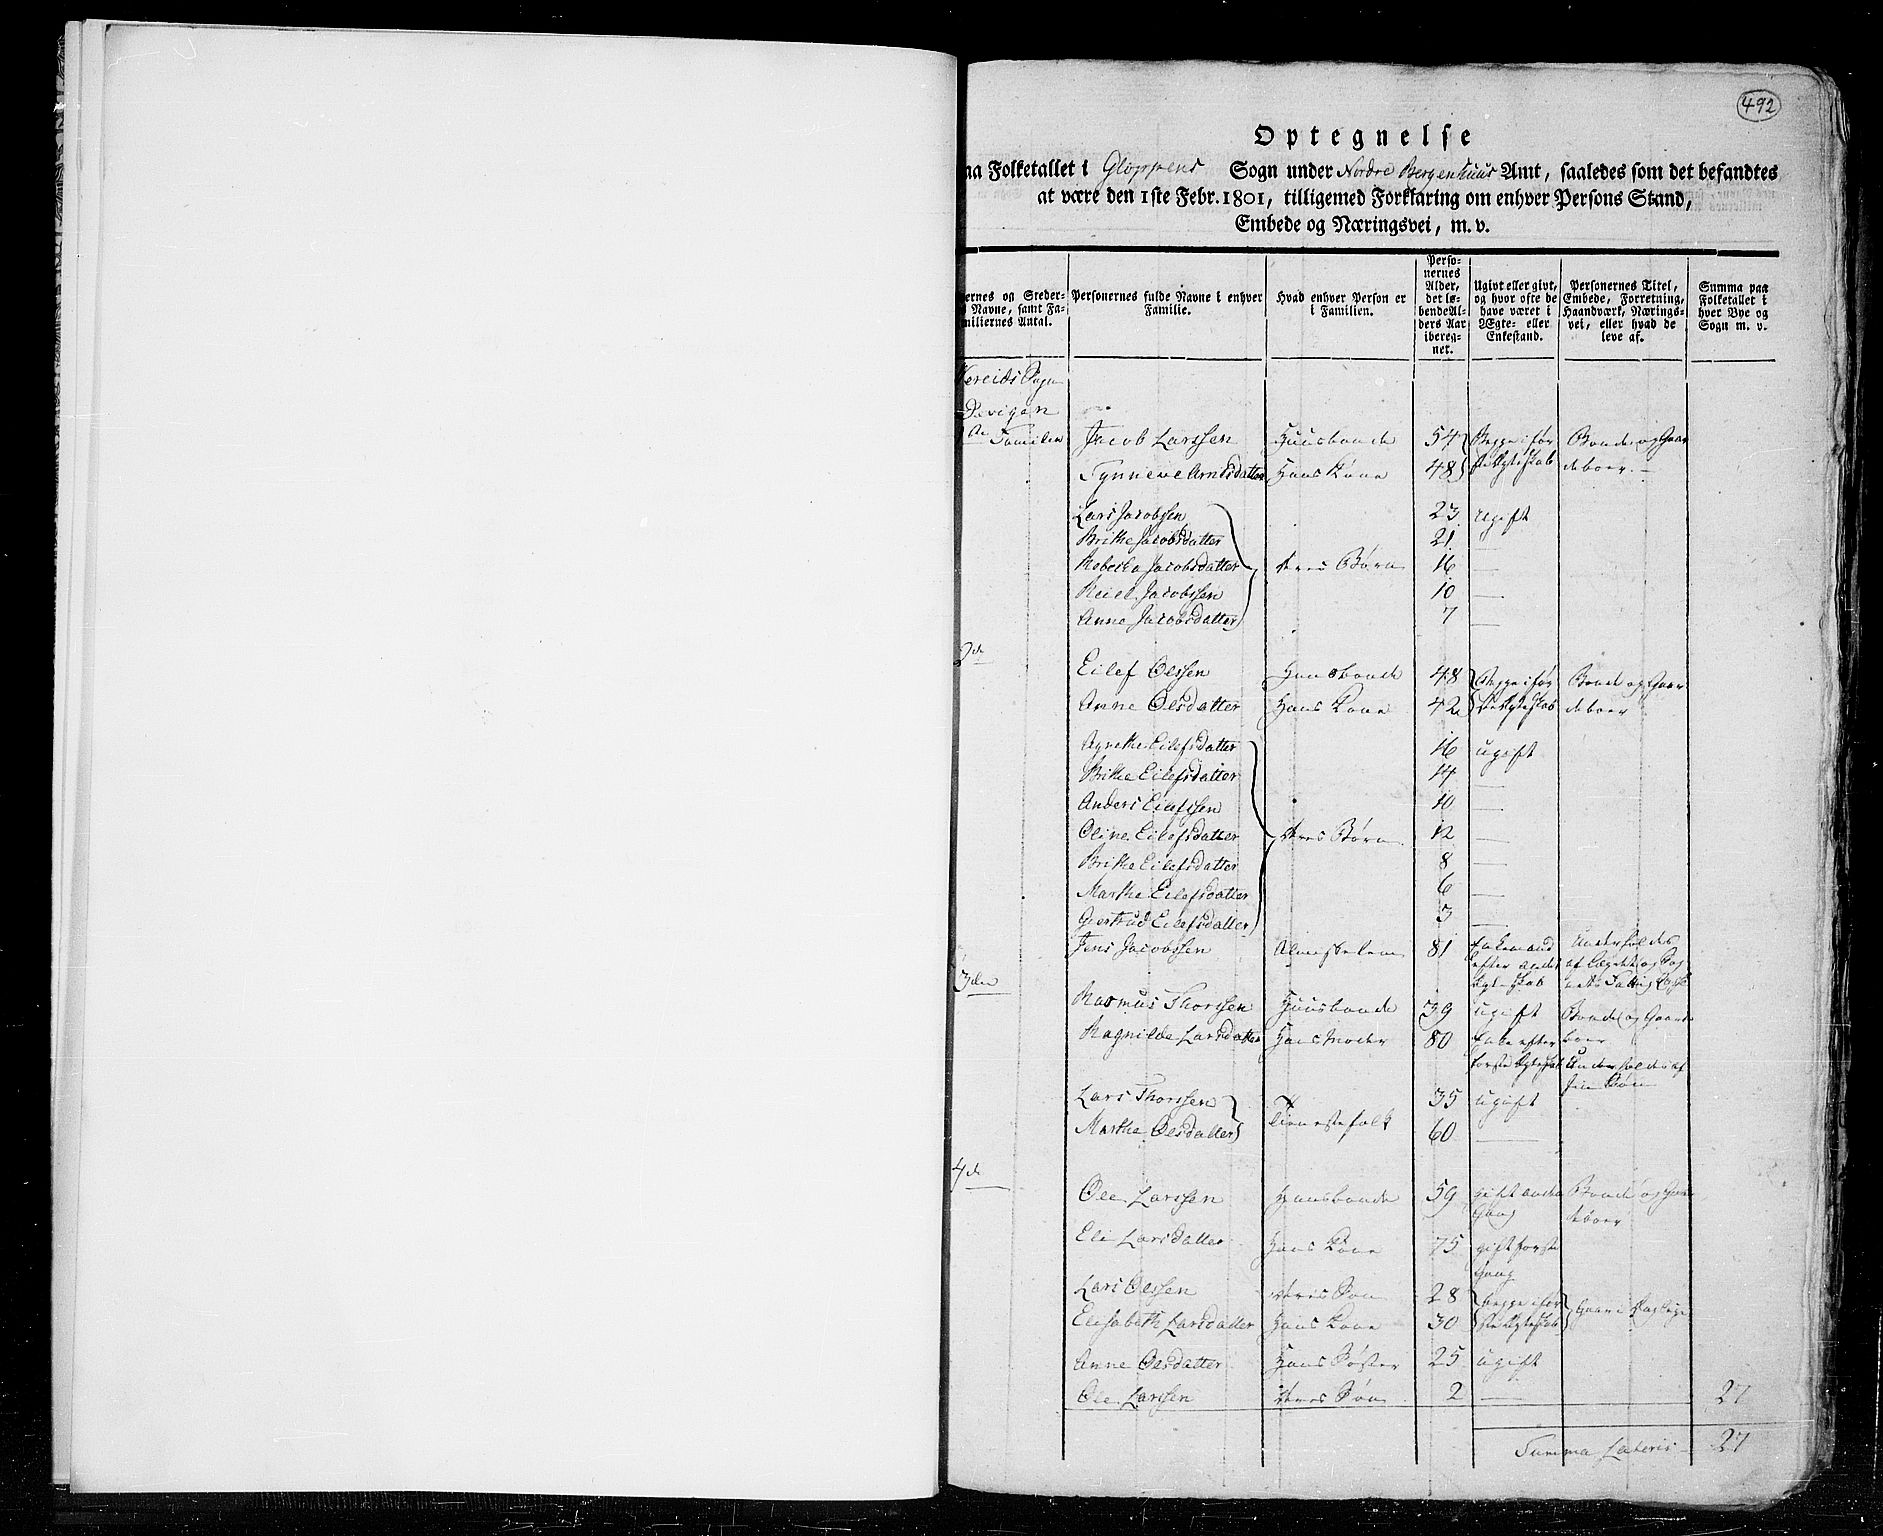 492
Optegnelse
aa Folketallet i Gloppens Sogn under Nordre Bergenhuus Amt, saaledes som det befandtes
at være den 1ste Febr. 1801, tilligemed Forklaring om enhver Persons Stand,
Embede og Næringsvei, m. v.
ernes og Steder- Navne, samt Fa- miliernes Antal.
Personernes fulde Navne i enhver Familie.
Hvad enhver Person er i Familien.
Perso- nernes Alder, det lø- bende Al- ders Aar iberegnet.
Ugivt eller givt, og hvor ofte de have været i Ægte- eller Enkestand.
Personernes Titel, Embede, Forretning, Haandværk, Nærings- vei, eller hvad de leve af.
Summa paa Folketallet i hver Bye og Sogn m. v.
Vereids Sogn
Devigen
Familie Jacob Larssen Huusbonde 54 Begge i før Bonde og Gaar
Synneve Arnesdatter Hans Kone 48 ste Ægteskab deboer
Lars Jacobsen 23 ugift
Brithe Jacobsdatter 21 —
Rebecka Jacobsdatter deres Børn 16 —
Reiel Jacobssen 10 —
Anne Jacobsdatter 7 —
2de
Eilef Olssen Huusbonde 48 Begge i før Bonde og Gaar
Anne Olsdatter Hans Kone 42 ste Ægteskab deboer
Agnethe Eilefsdatter 16 ugift
Brithe Eilefsdatter 14 —
Anders Eilefssen 10 —
Oline Eilefsdatter deres Børn 12 —
Brithe Eilefsdatter 8 —
Marthe Eilefsdatter 6 —
Giertrud Eilefsdatter 3 —
Jens Jacobssen Almisselem 81 Enkemand Underholdes
efter andet af Lægdet og Sog
Ægteskab nets Fattig Casse
3die
Rasmus Thorssen Huusbonde 39 ugift Bonde og Gaard
Ragnilde Larsdatter Hans Moder 80 Enke efter boer
første Ægteskab Underholdes af
sin Søn
Lars Thorssen 35 ugift
Marthe Olsdatter Tienestefolk 60 —
4de
Ole Larssen Huusbonde 59 gift anden Bonde og Gaar
Gang deboer
Eli Larsdatter Hans Kone 75 gift første
Gang
Lars Olssen deres Søn 28 begge i før
Elisabeth Larsdatter Hans Kone 30 ste Ægteskab
Anne Olsdatter Hans Søster 25 ugift
Ole Larssen deres Søn 2 — 27
Summa Lateris 27